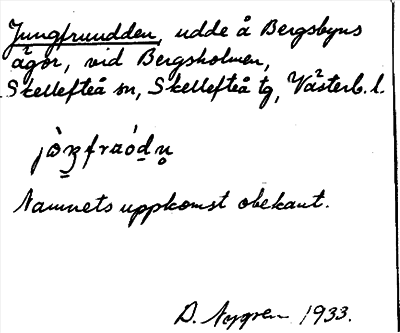 Jungfruudden, udde å Bergsbyns
ägor, vid Bergsholmen,
Skellefteå sn, Skellefteå tg, Västerb. l.
Namnets uppkomst obekant.
D. Nygren 1933.